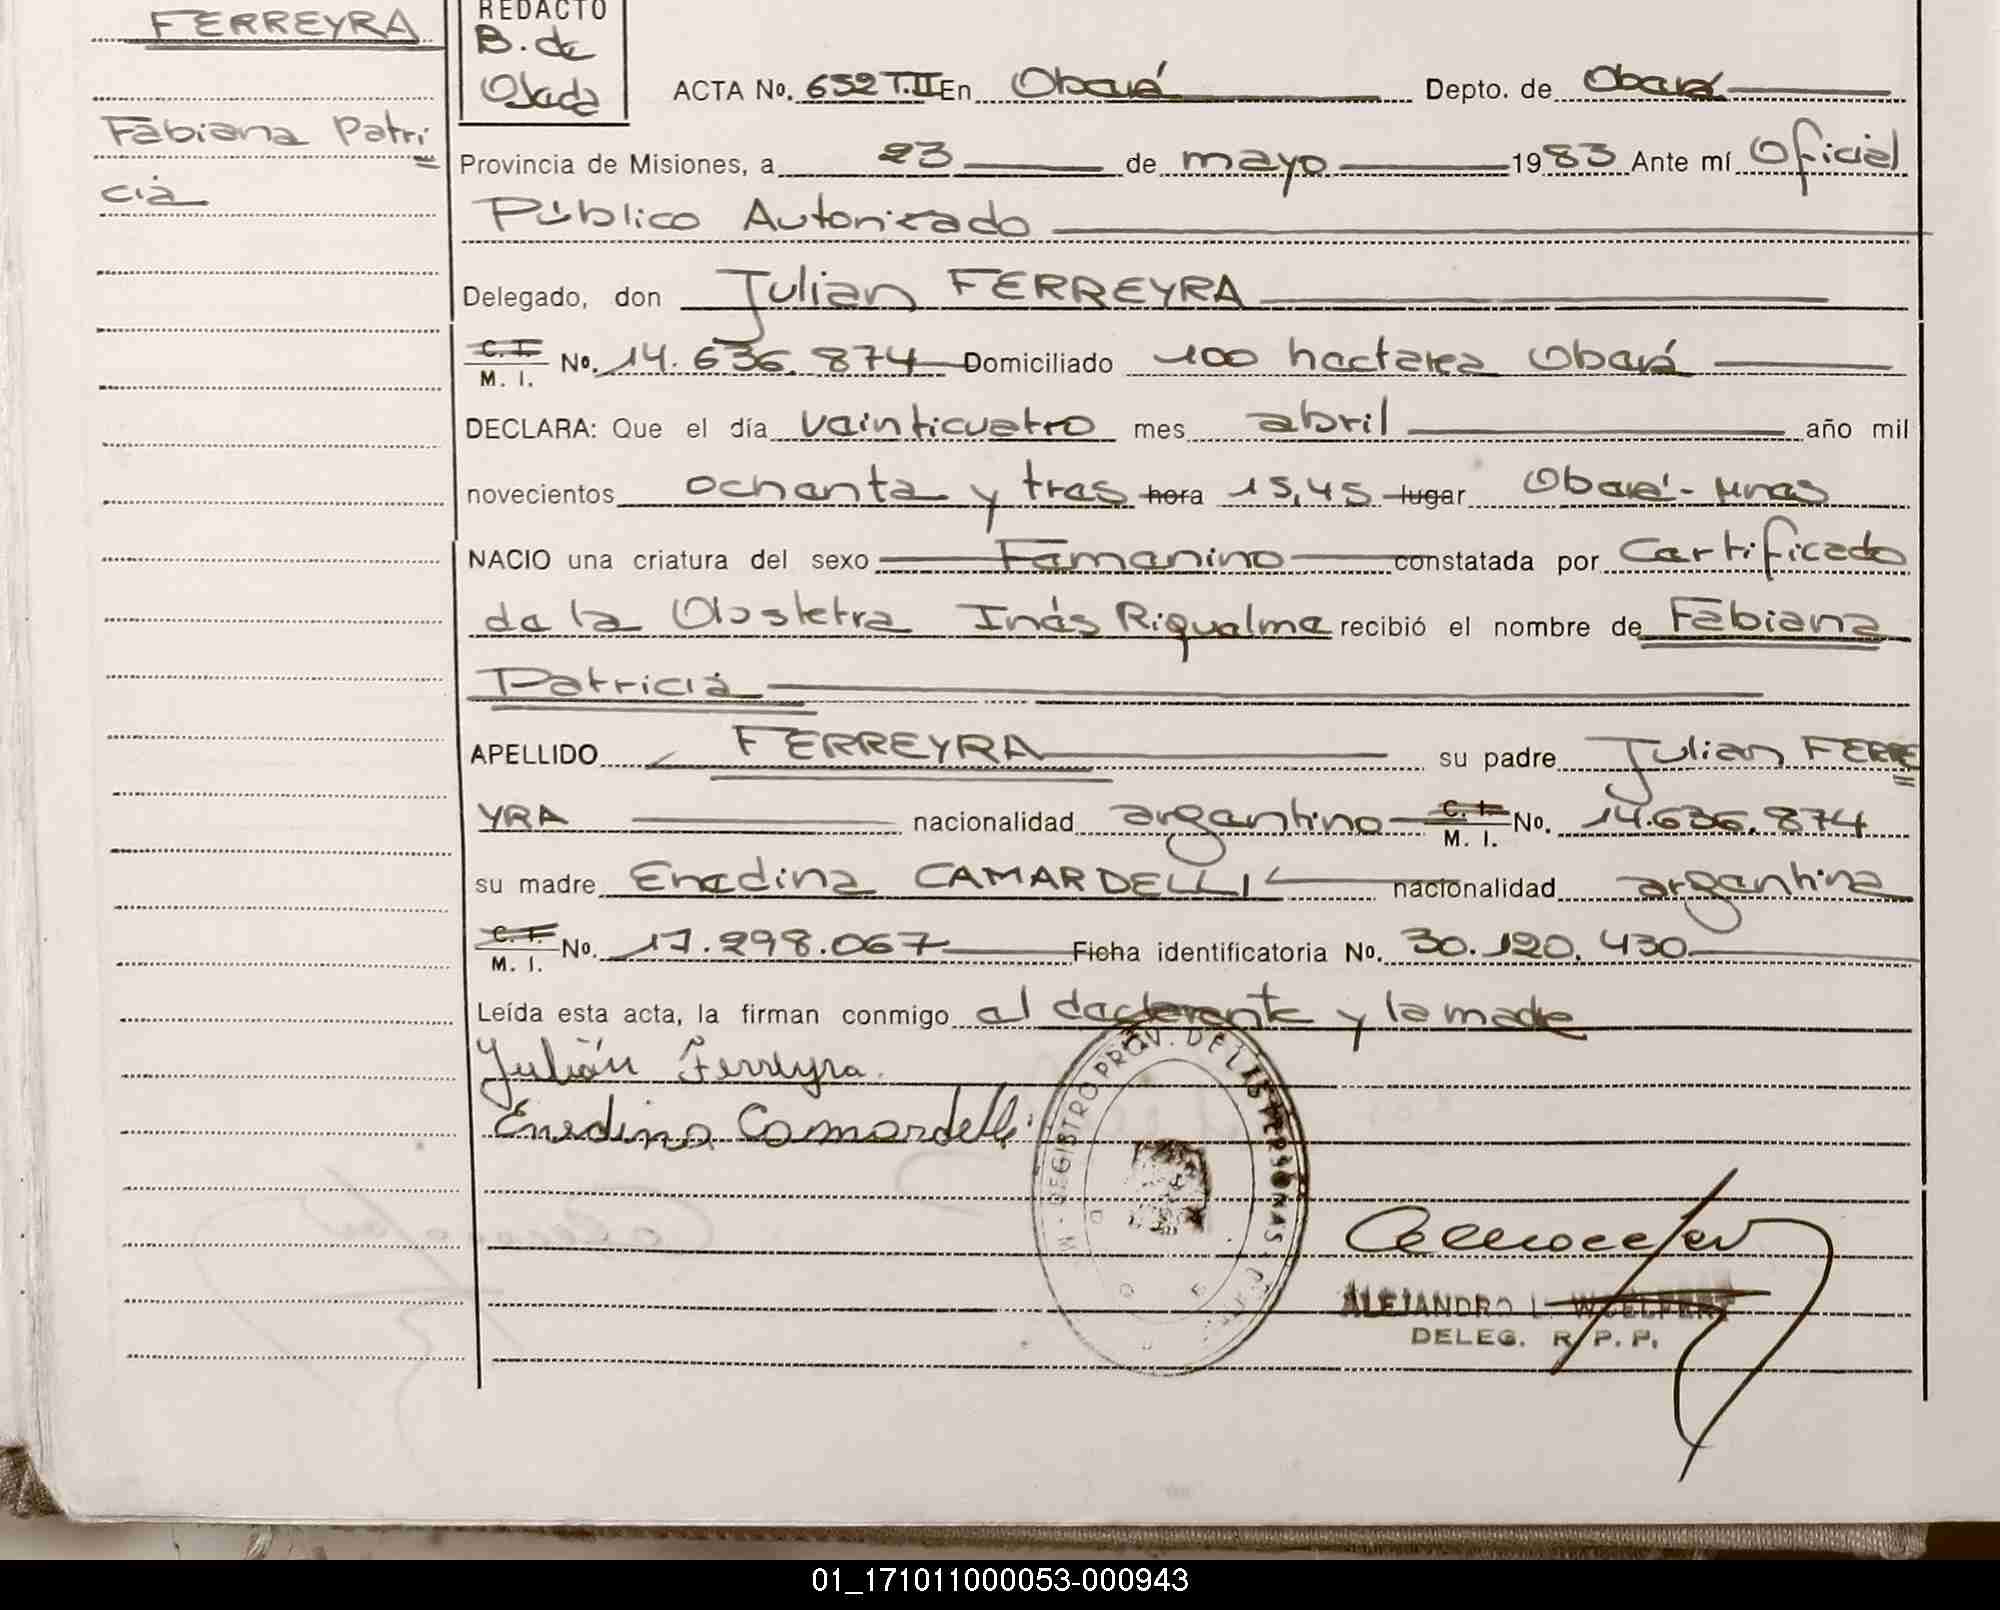 FERREYRA
Fabiana Patri
cia
REDACTO
B. de
Ojeda
ACTA No. 652 T.II En Oberá Depto. de Oberá
Provincia de Misiones, a 23 de mayo 1983 Ante mí Oficial
Público Autorizado
Delegado, don Julian FERREYRA
C. I. M. I. No. 14.636.874 Domiciliado 100 hectarea Oberá
DECLARA: Que el día veinticuatro mes abril año mil
novecientos ochenta y tres hora 15,45 lugar Oberá-Mnes
NACIO una criatura del sexo Femenino constatada por Certificado
de la Obstetra Inés Riquelme recibió el nombre de Fabiana
Patricia
APELLIDO FERREYRA su padre Julian FERRE
YRA nacionalidad argentino C. I. M. I. No. 14.636.874
su madre Enedina CAMARDELLI nacionalidad argentina
C. I. M. I. No. 17.298.067 Ficha identificatoria No. 30.120.430
Leída esta acta, la firman conmigo el declarante y la madre
Julián Ferreyra.
Enedina Camardelli
REGISTRO PROV. DE LAS PERSONAS
ALEJANDRO L. WOELFERT
DELEG. R. P. P.
01_171011000053-000943